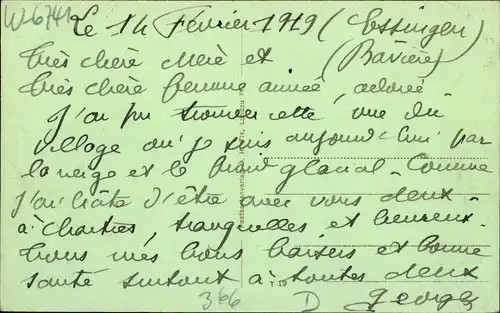 W-6741
Le 14 Février 1919 (Essingen
Très chère Mère et (Bavière)
très chère femme aimée, adorée
J'ai pu trouver cette vue du
village où je suis aujourd'hui par
la neige et le froid glacial. Comme
j'ai hâte d'être avec vous deux
à Chartres, tranquilles et heureux.
Tous mes bons baisers et bonne
santé surtout à toutes deux
366 D Georges